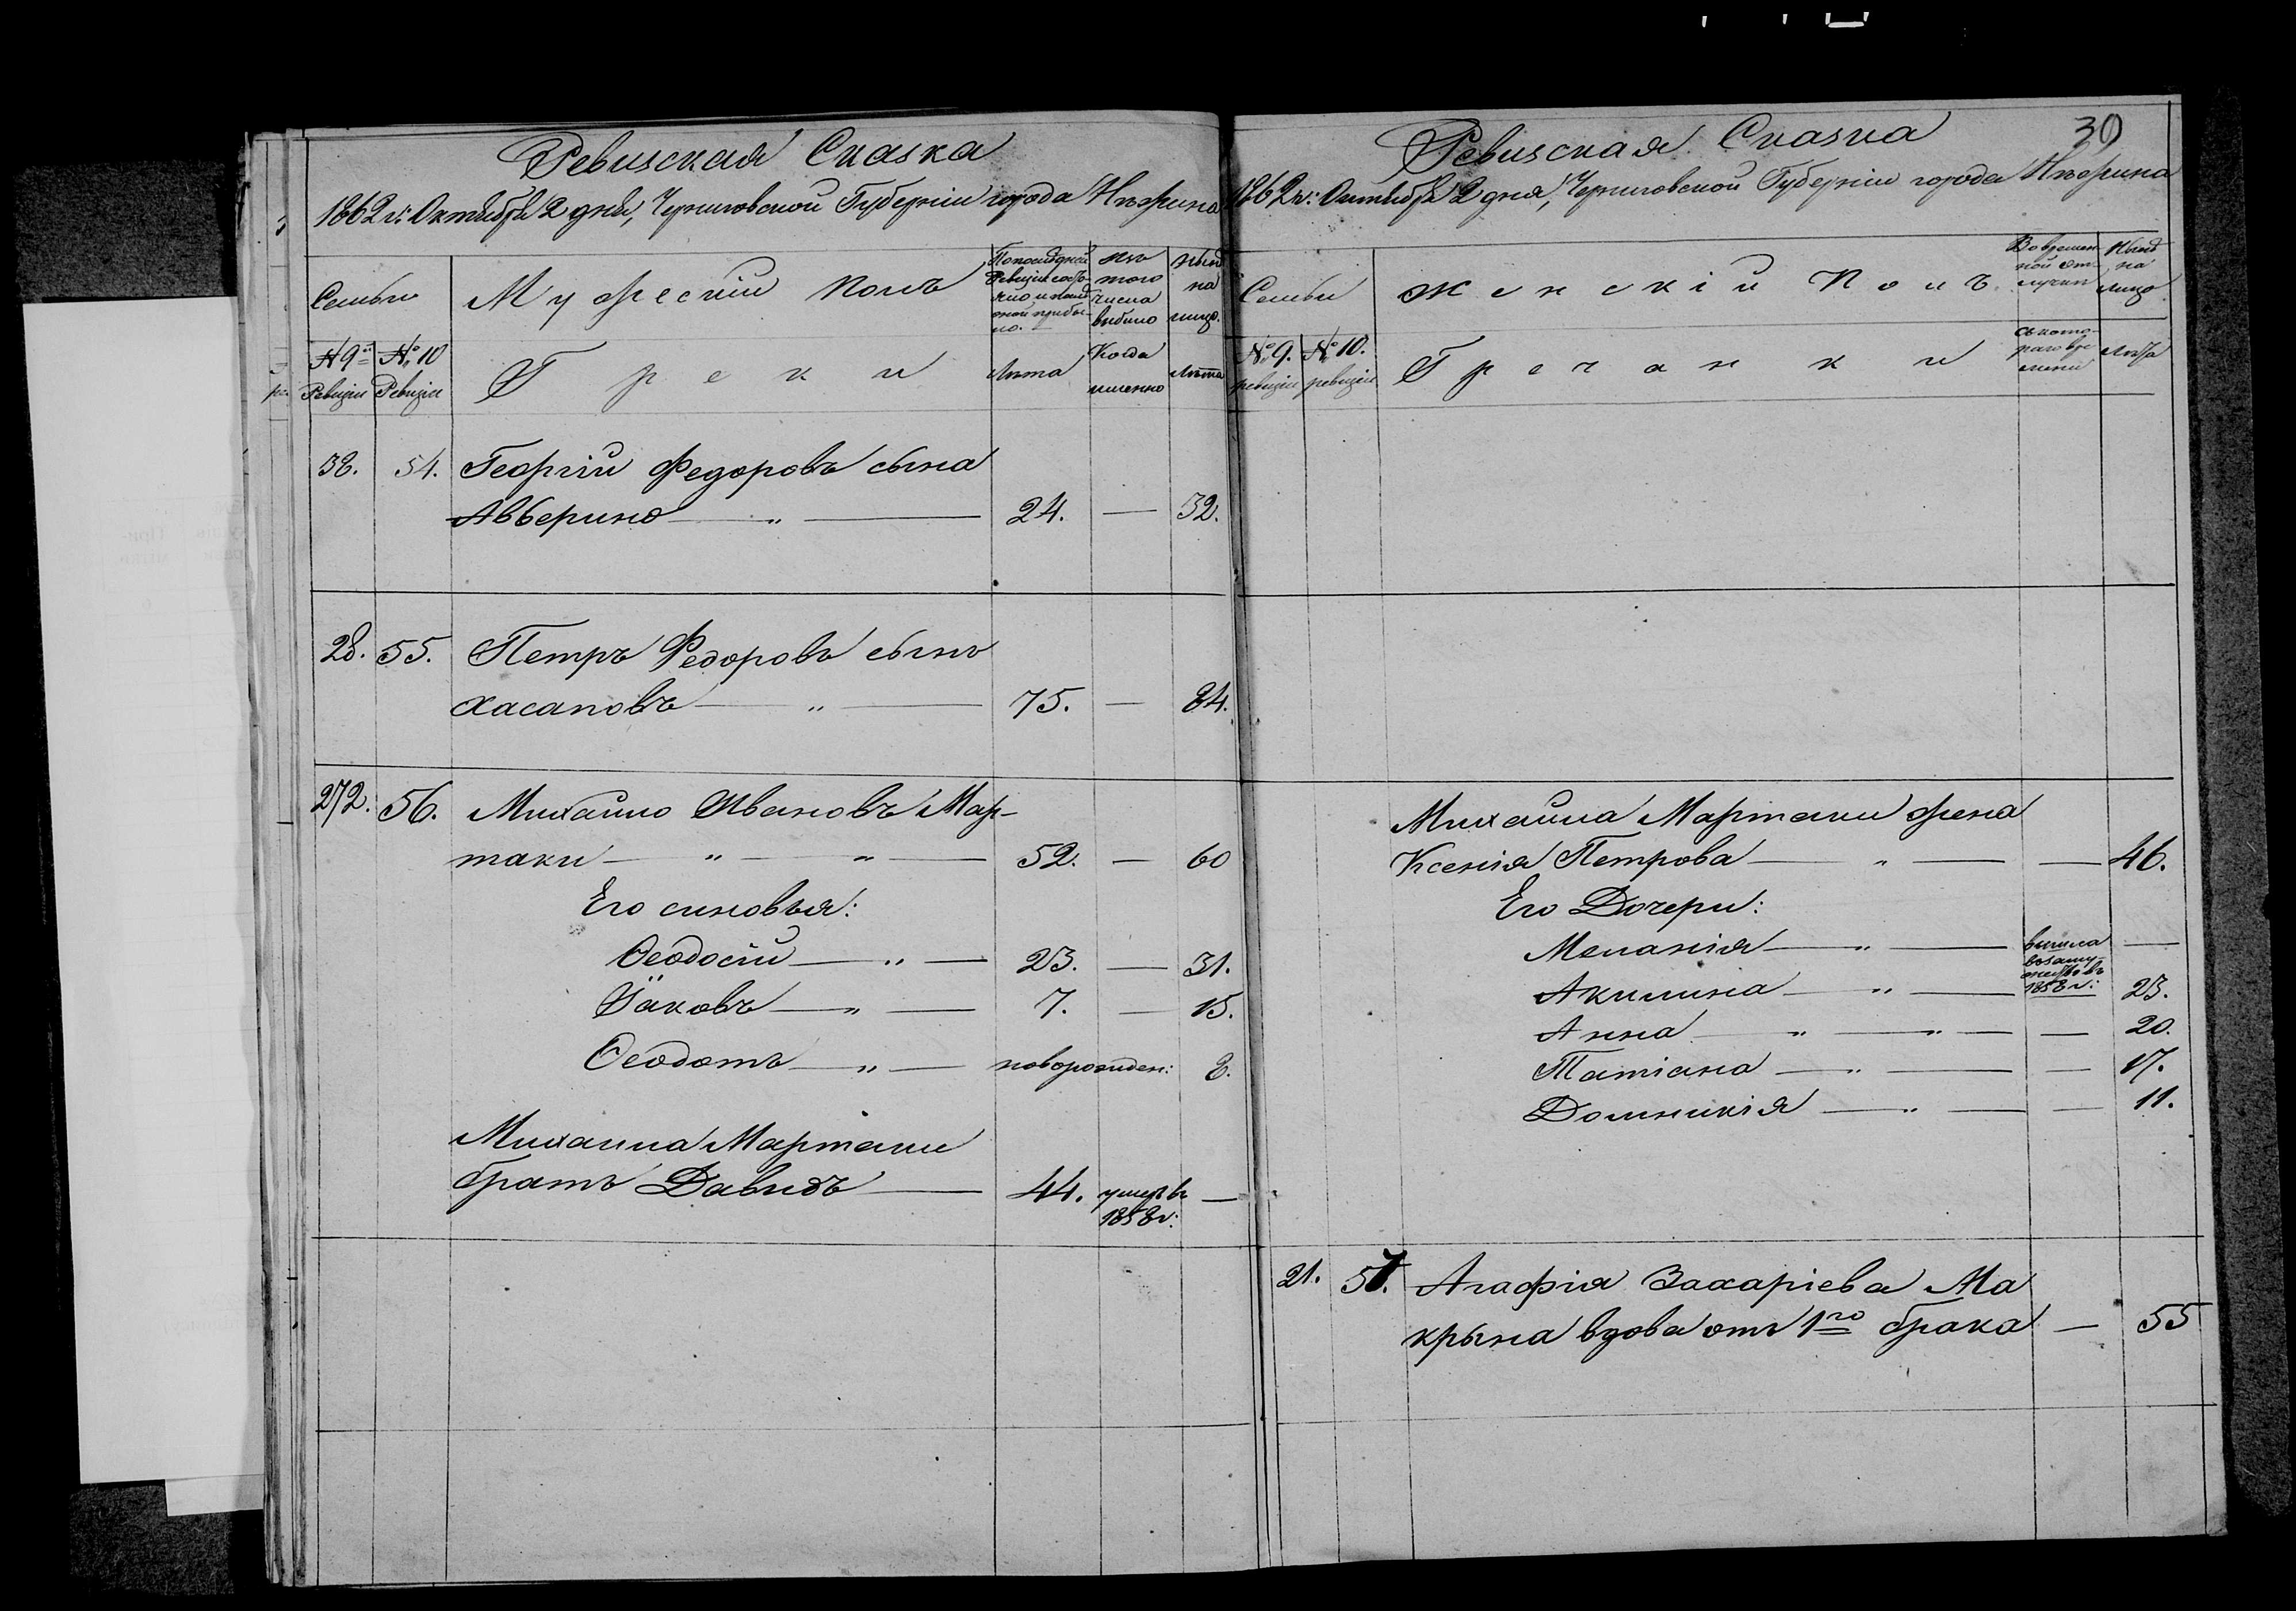 Ревизская Сказка
1862 г: Октября 2 дня, Черниговской Губерніи города Нѣжина
Семьи
Мужескій полъ
По последней ревизіи состояло и после оной прибыло.
Изъ того числа выбыло
Нынѣ на лицо.
№ 9й Ревизіи
№ 10 Ревизіи
Греки
Лѣта
Когда именно
Лѣта
38. 54. Георгій Федоровъ сынъ
Авверино — „ — 24. — 32.
28. 55. Петръ Федоровъ сынъ
Хасаповъ — „ — 75. — 84.
272. 56. Михайло Ивановъ Мар-
таки — „ — „ — 52. — 60
Его синовья:
Ѳеодосій — „ — 23. — 31.
Іаковъ — „ — 7. — 15.
Ѳеодотъ — „ — новорожден: 8.
Михаила Мартаки
братъ Давидъ — 44. умеръ въ —
1858 г:
30
Ревизская Сказка
1862 г: Октября 2 дня, Черниговской Губерніи города Нѣжина
Семьи
Женскій Полъ
Во времен-
ной от-
лучкѣ
Нынѣ
на
лицо
№ 9. ревизіи
№ 10. ревизіи
Гречанки
Съ кото-
раго вре
мени
Лѣта
Михаила Мартаки жена
Ксенія Петрова — „ — — 46.
Его Дочери:
Меланія — „ — вышла —
въ заму-
жество въ
1858 г:
Акилина — „ — 23.
Анна — „ — „ — — 20.
Татіана — „ — — 17.
Домникія — „ — — 11.
21. 57. Агафія Захаріева Ма
крына вдова отъ 1го брака — 55